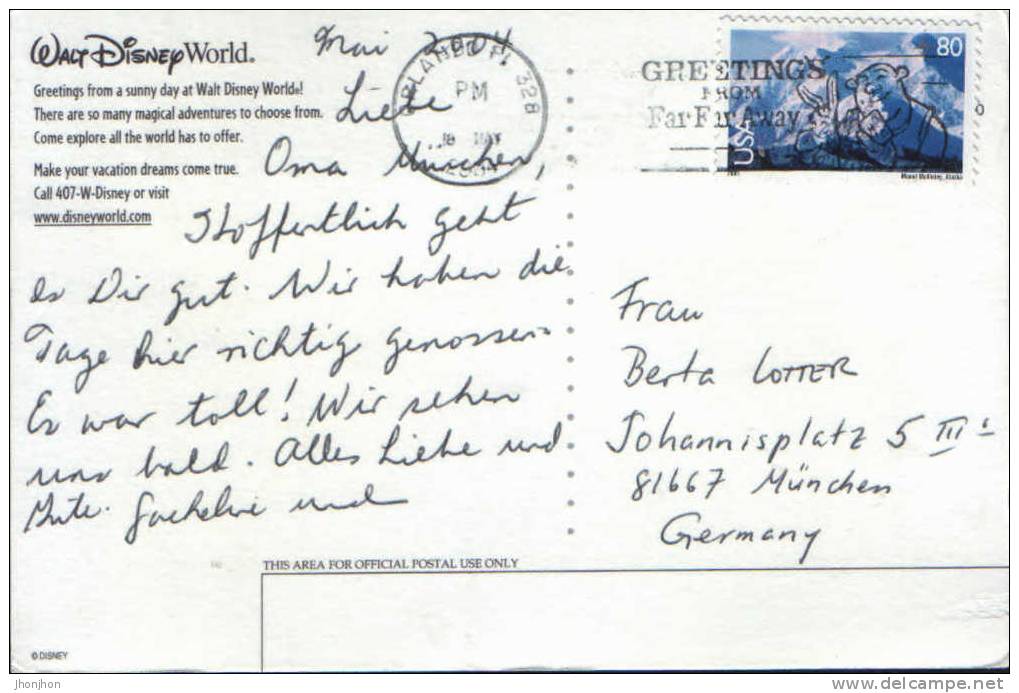 WALT DISNEY World.
Greetings from a sunny day at Walt Disney World!
There are so many magical adventures to choose from.
Come explore all the world has to offer.
Make your vacation dreams come true.
Call 407-W-Disney or visit
www.disneyworld.com
Mai 2004
Liebe
Oma München,
Hoffentlich geht
es Dir gut. Wir haben die
Tage hier richtig genossen.
Es war toll! Wir sehen
uns bald. Alles Liebe und
Gute. und
ORLANDO FL 328
PM
MAY
2004
GREETINGS
FROM
Far Far Away
80
USA
Mount McKinley, Alaska
Frau
Berta LOTTER
Johannisplatz 5 III
81667 München
Germany
THIS AREA FOR OFFICIAL POSTAL USE ONLY
© DISNEY
jhonjhon
www.delcampe.net